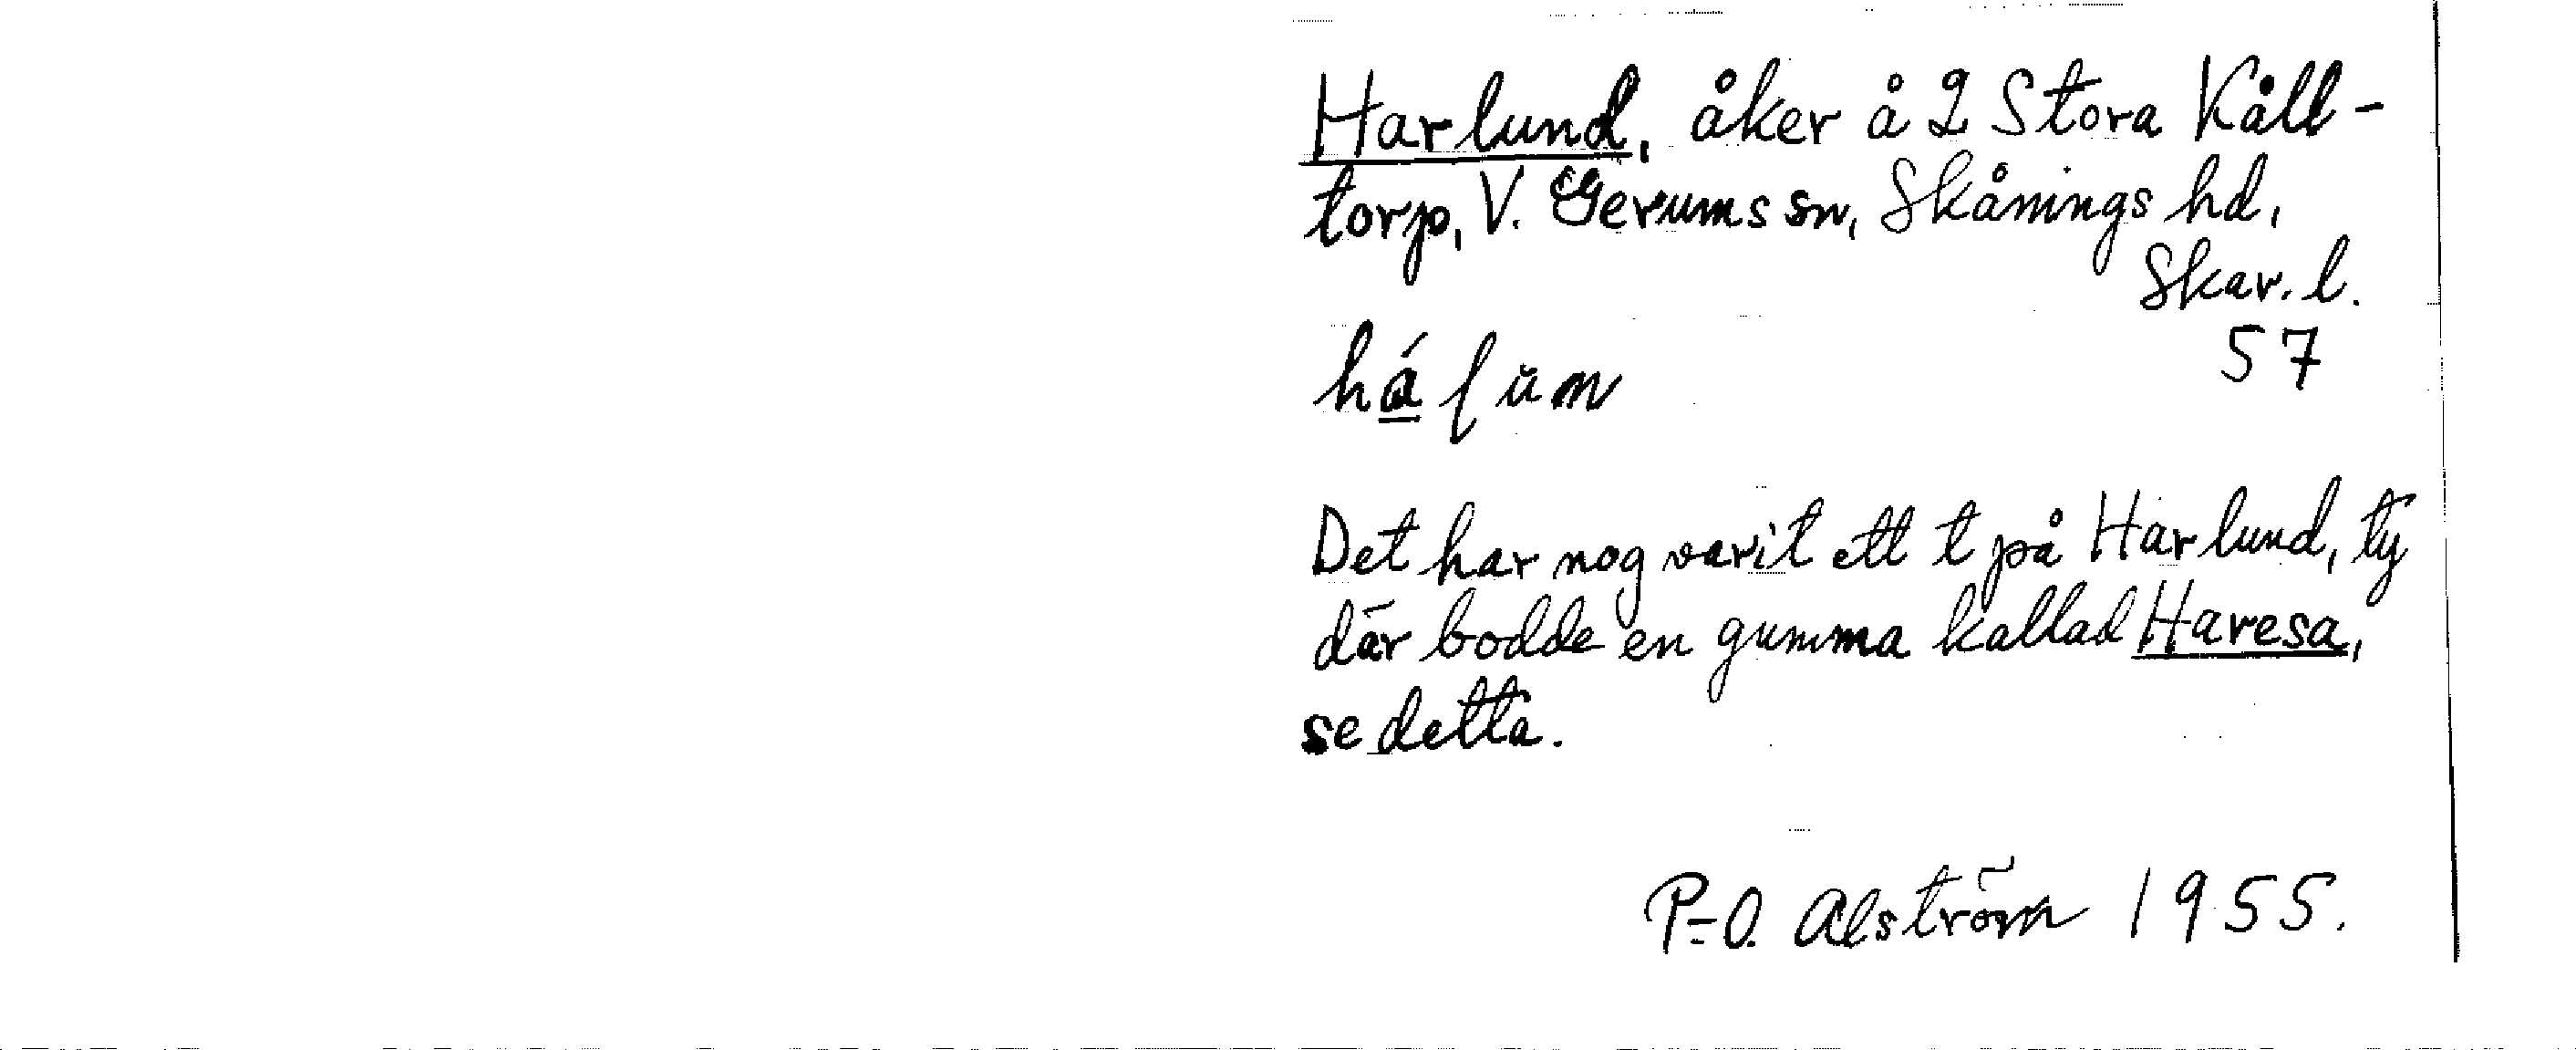 Harlund, åker å 2 Stora Kåll-
torp, V. Gerums sn, Skånings hd,
Skar. l.
57
há lŭn
Det har nog varit ett t på Harlund, ty
där bodde en gumma kallad Haresa,
se detta.
P-O. Alström 1955.